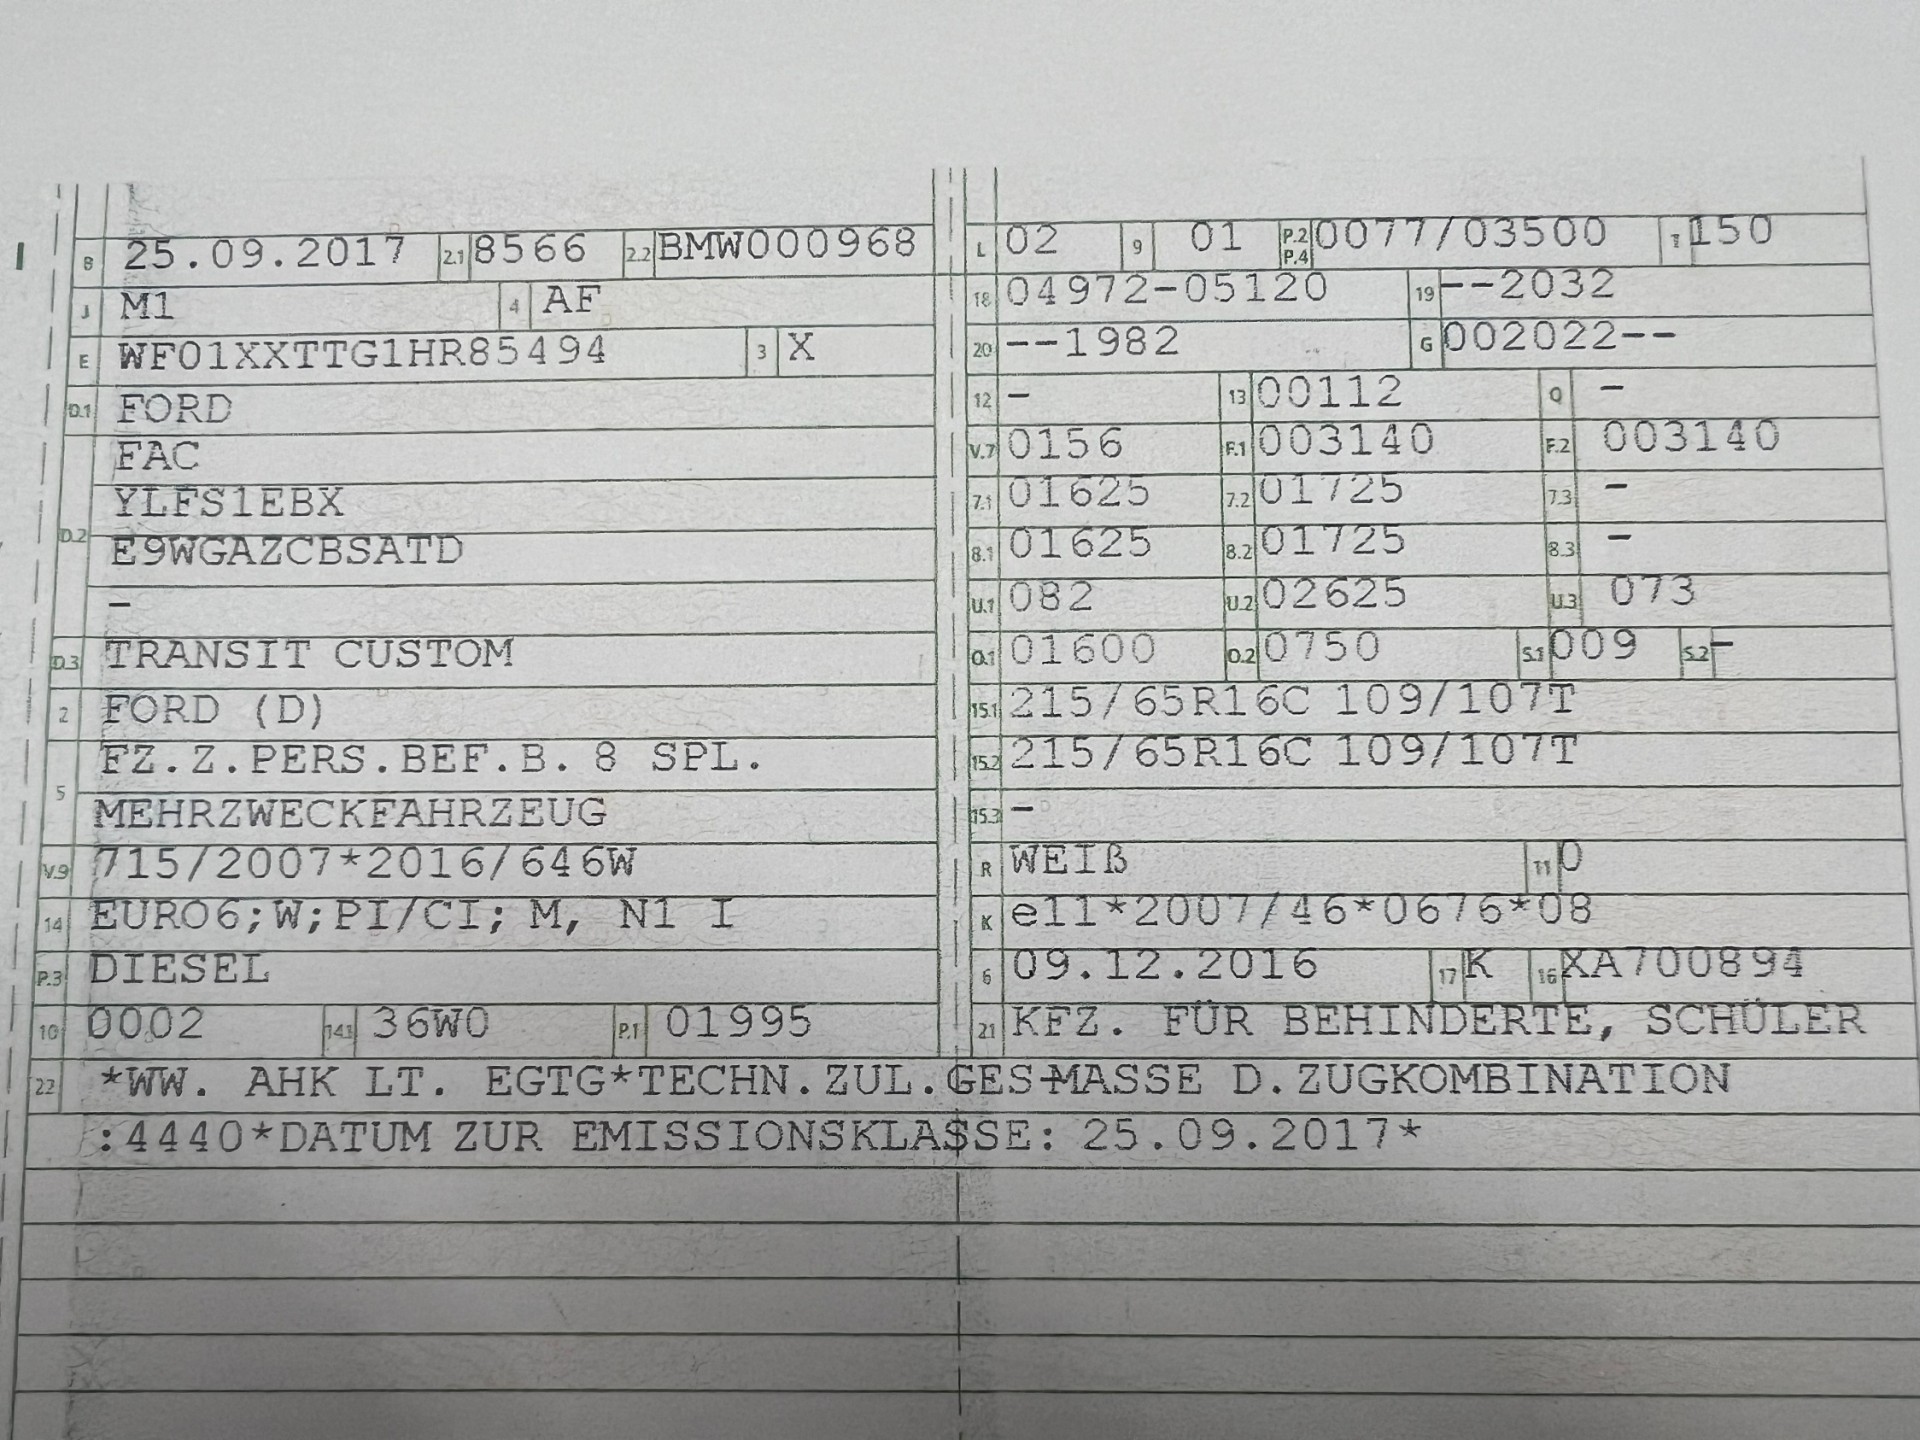 B 25.09.2017 2.1 8566 2.2 BMW000968
J M1 4 AF
E WF01XXTTG1HR85494 3 X
D.1 FORD
FAC
YLFS1EBX
D.2 E9WGAZCBSATD
–
D.3 TRANSIT CUSTOM
2 FORD (D)
FZ.Z.PERS.BEF.B. 8 SPL.
5 MEHRZWECKFAHRZEUG
V.9 715/2007*2016/646W
14 EURO6;W;PI/CI; M, N1 I
P.3 DIESEL
10 0002 14.1 36W0 P.1 01995
L 02 9 01 P.2 P.4 0077/03500 T 150
18 04972-05120 19 --2032
20 --1982 G 002022--
12 – 13 00112 Q –
V.7 0156 F.1 003140 F.2 003140
7.1 01625 7.2 01725 7.3 –
8.1 01625 8.2 01725 8.3 –
U.1 082 U.2 02625 U.3 073
O.1 01600 O.2 0750 S.1 009 S.2 –
15.1 215/65R16C 109/107T
15.2 215/65R16C 109/107T
15.3 –
R WEIß 11 0
K e11*2007/46*0676*08
6 09.12.2016 17 K 16 XA700894
21 KFZ. FÜR BEHINDERTE, SCHÜLER
22 *WW. AHK LT. EGTG*TECHN.ZUL.GES-MASSE D.ZUGKOMBINATION
:4440*DATUM ZUR EMISSIONSKLASSE: 25.09.2017*